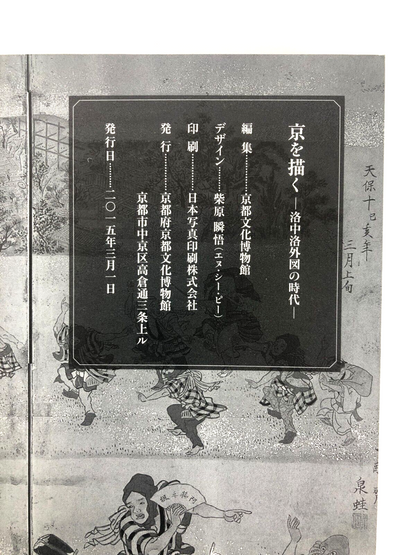 京を描く
―洛中洛外図の時代―
編　集…………京都文化博物館
デザイン…………柴原 瞬悟(エヌ・シー・ピー)
印　刷…………日本写真印刷株式会社
発　行…………京都府京都文化博物館
京都市中京区高倉通三条上ル
発行日…………二〇一五年三月一日
天保十己亥年
三月上旬
泉蛙